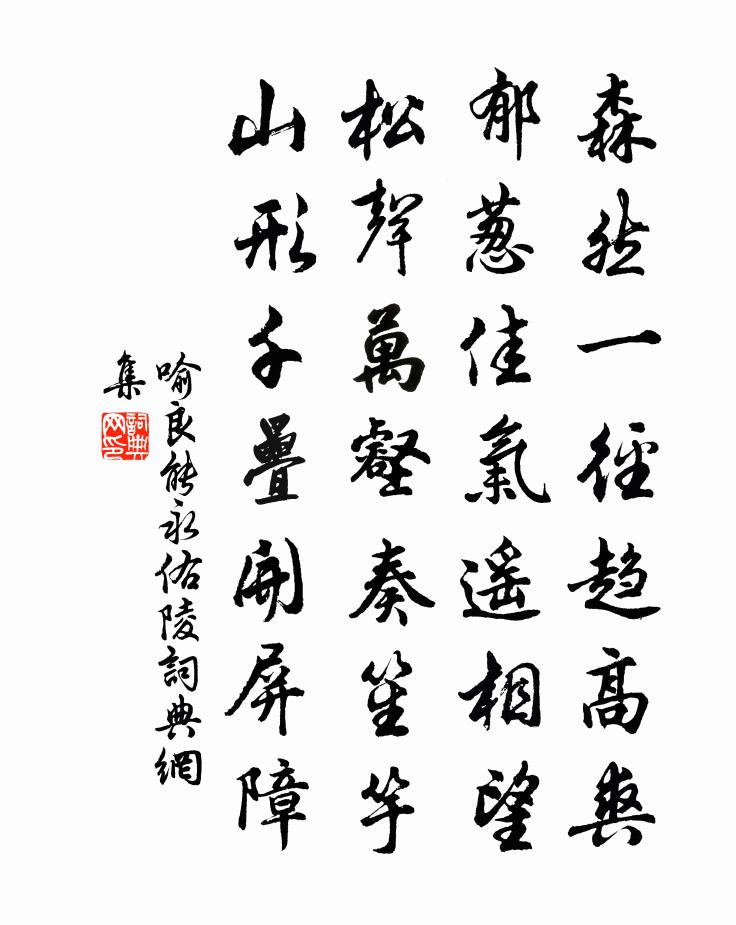 森然一徑趋高爽
郁葱佳氣遥相望
松聲萬壑奏笙竽
山形千疊開屏障
喻良能永佑陵詞典網
集
詞典
网印